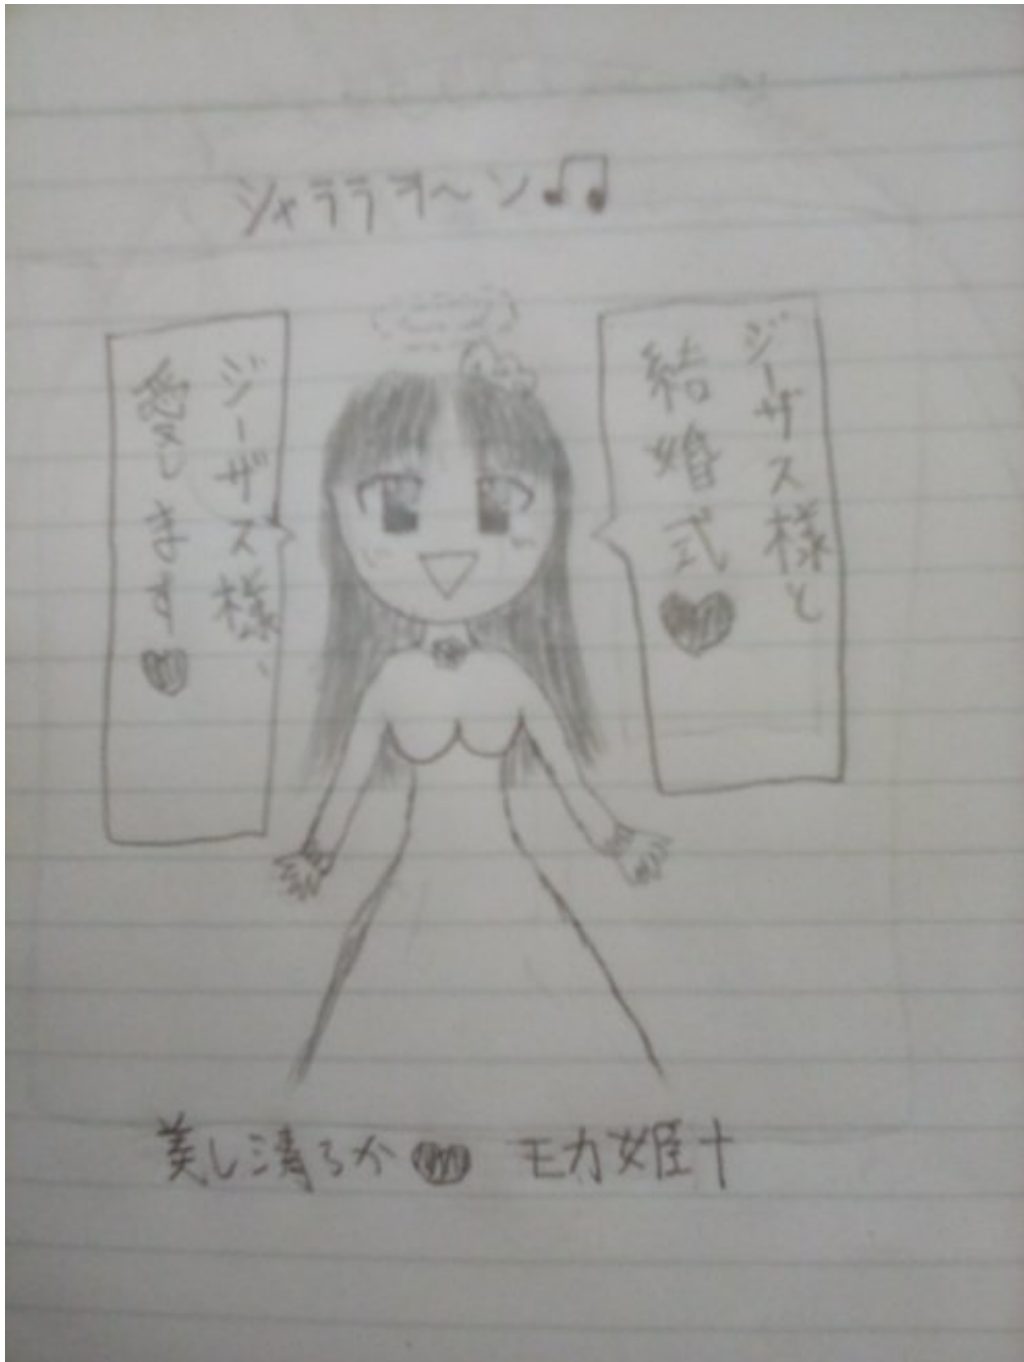 シャラララ〜ン♫
ジーザス様と
結婚式♥
ジーザス様、
愛します♥
美し清らか♥ モカ姫十